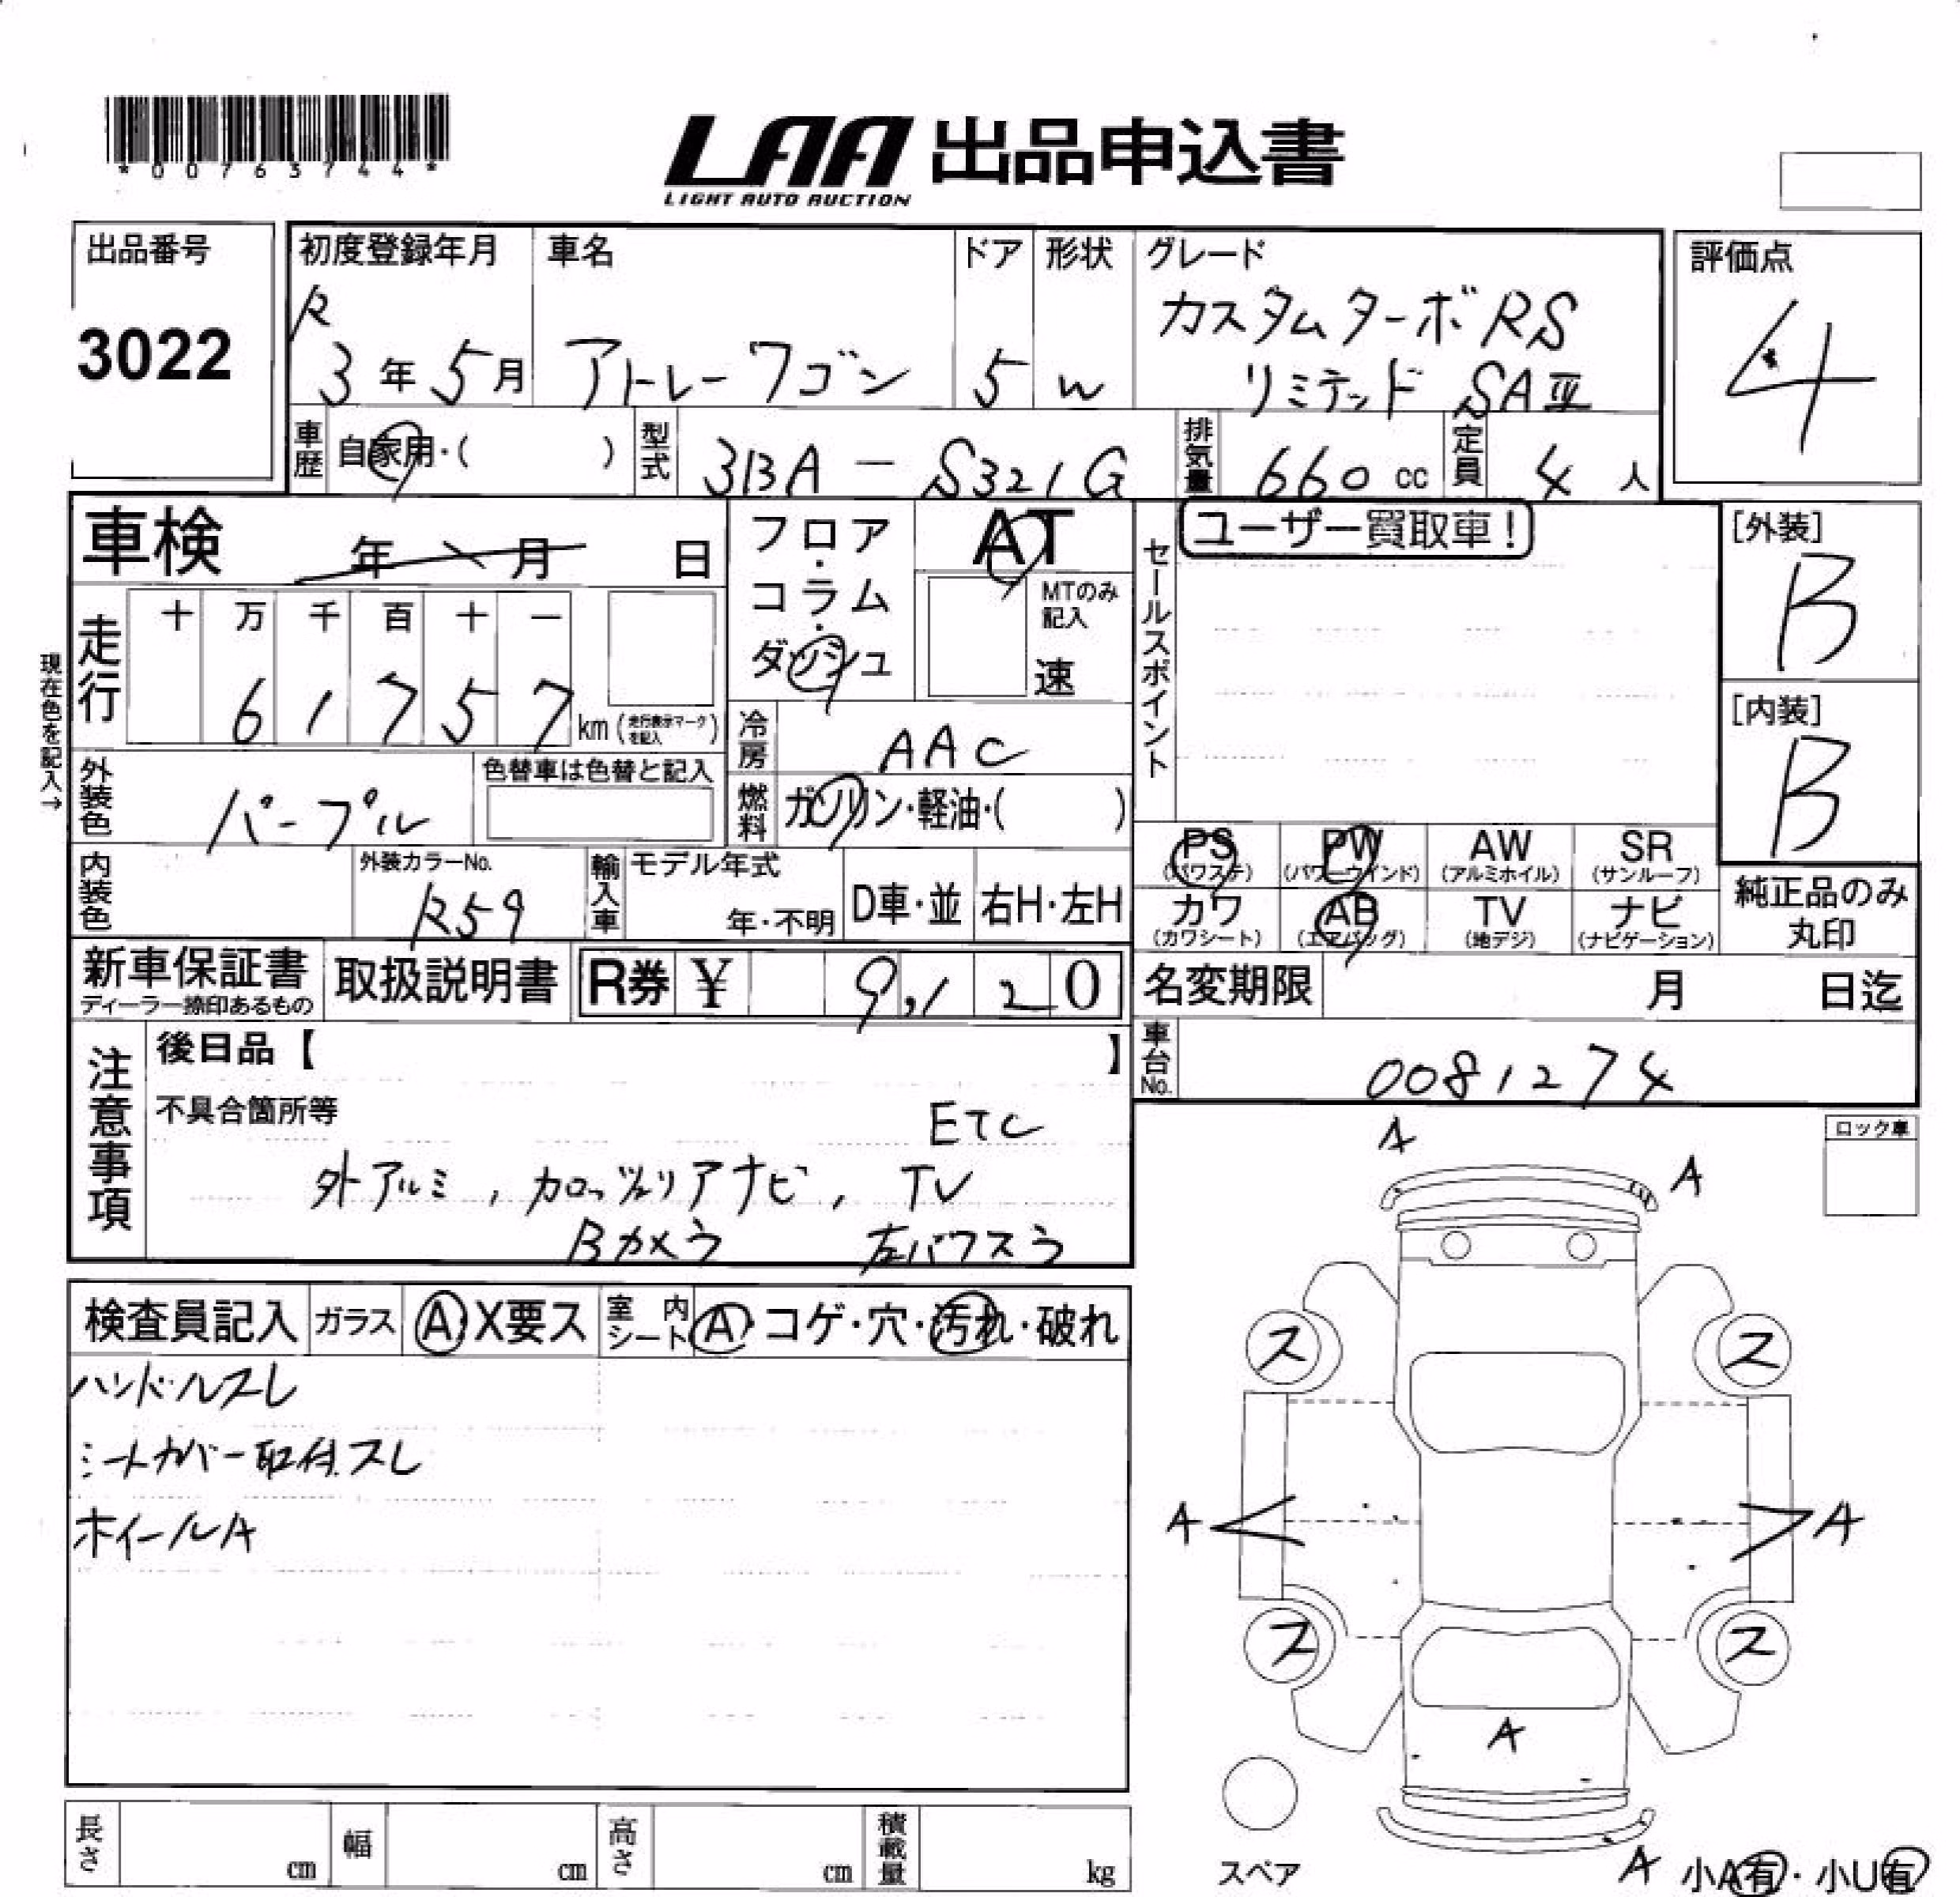 *00763744*
LAA 出品申込書
LIGHT AUTO AUCTION
出品番号
3022
初度登録年月
R
3年5月
車名
アトレーワゴン
ドア
5
形状
W
グレード
カスタムターボRS
リミテッド SAⅢ
評価点
4
車歴
自家用・( )
型式
3BA - S321G
排気量
660 cc
定員
4 人
車検
年 月 日
フロア・コラム・ダッシュ
AT
MTのみ記入
速
セールスポイント
ユーザー買取車!
[外装]
B
[内装]
B
現在色を記入→
走行
十 万 千 百 十 一
6 1 7 5 7 km (走行表示マークを記入)
冷房
AAC
外装色
パープル
色替車は色替と記入
燃料
ガソリン・軽油・( )
PS
(パワステ)
PW
(パワーウインド)
AW
(アルミホイル)
SR
(サンルーフ)
カワ
(カワシート)
AB
(エアバッグ)
TV
(地デジ)
ナビ
(ナビゲーション)
純正品のみ
丸印
内装色
外装カラーNo.
R59
輸入車
モデル年式
年・不明
D車・並
右H・左H
新車保証書
ディーラー捺印あるもの
取扱説明書
R券 ¥ 9,120
名変期限 月 日迄
車台No.
0081274
注意事項
後日品【 】
不具合箇所等
ETC
外アルミ, カロッツェリアナビ, TV
Bカメラ 左パワスラ
ロック車
検査員記入
ガラス
A X要ス
室内シート
A・コゲ・穴・汚れ・破れ
ハンドルスレ
シートカバー取付スレ
ホイールA
A
A
ス
ス
A
A
ス
ス
A
A
スペア
小A有・小U有
長さ cm
幅 cm
高さ cm
積載量 kg